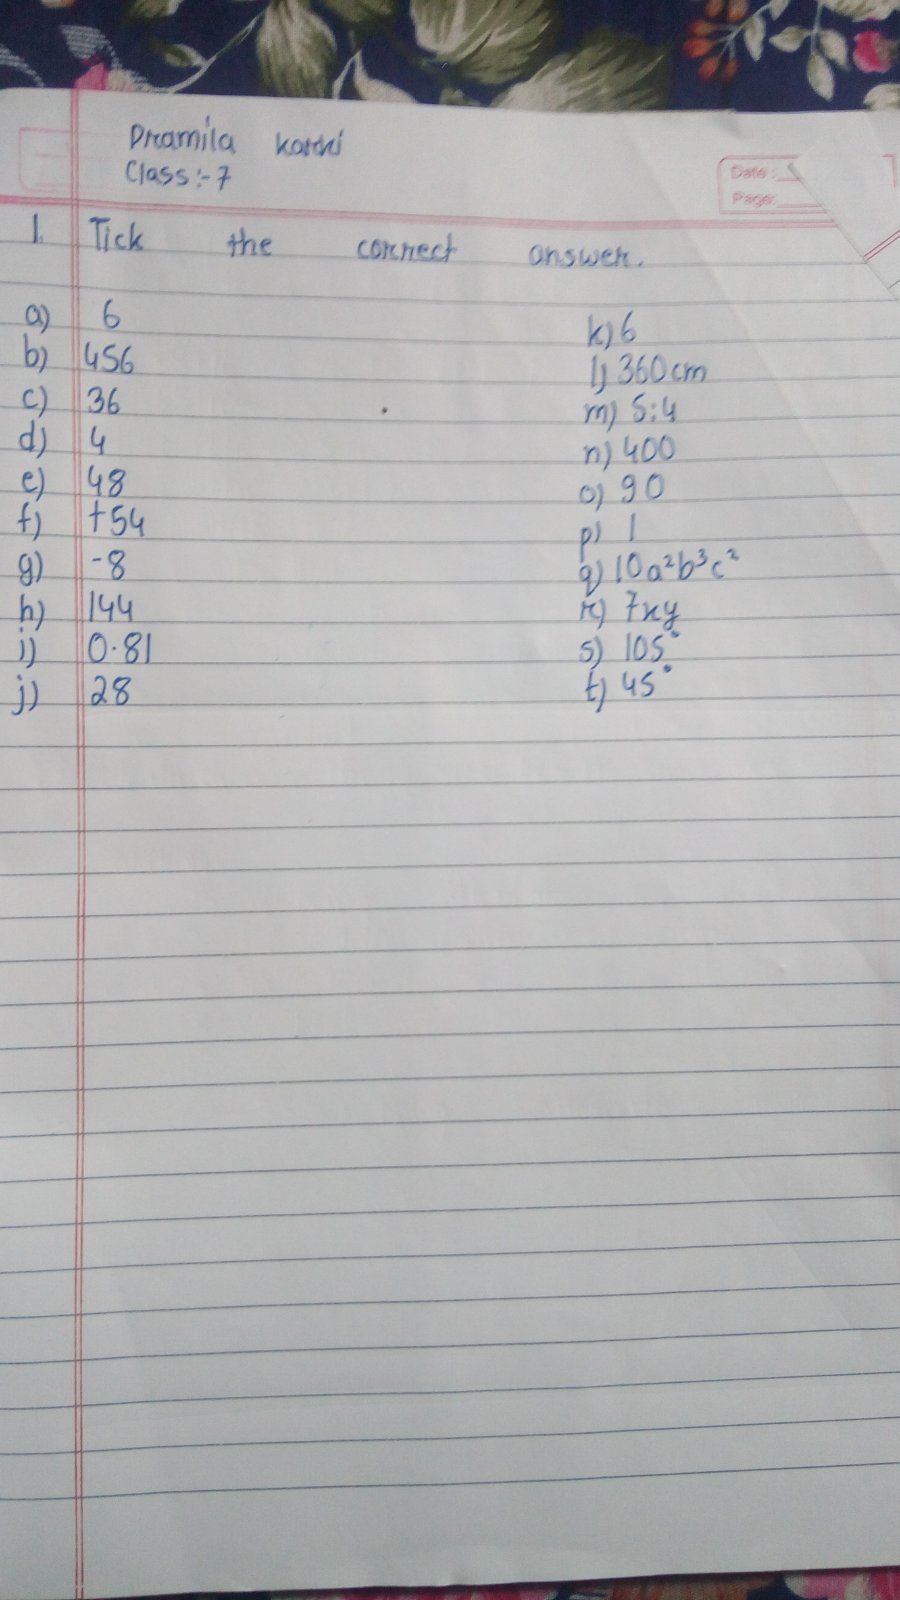 Pramila karki
Class:-7
Date:
Page:
1. Tick the correct answer.
a) 6
b) 456
c) 36
d) 4
e) 48
f) +54
g) -8
h) 144
i) 0.81
j) 28
k) 6
l) 360cm
m) 5:4
n) 400
o) 90
p) 1
q) 10a²b³c²
r) 7xy
s) 105°
t) 45°